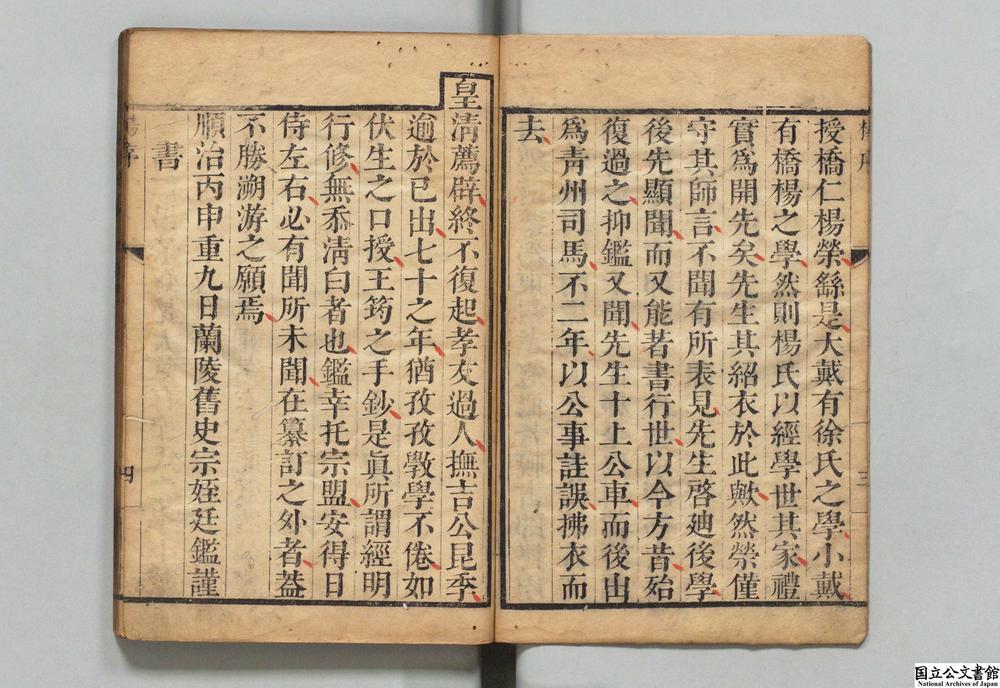 授橋仁楊榮繇是大戴有徐氏之學小戴
有橋楊之學然則楊氏以經學世其家禮
實爲開先矣先生其紹衣於此歟然榮僅
守其師言不聞有所表見先生啓廸後學
後先顯聞而又能著書行世以今方昔殆
復過之抑鑑又聞先生十上公車而後出
爲靑州司馬不二年以公事詿誤拂衣而
去
三
皇清薦辟終不復起孝友過人撫吉公昆季
逾於已出七十之年猶孜孜斆學不倦如
伏生之口授王筠之手鈔是眞所謂經明
行修無忝淸白者也鑑幸托宗盟安得日
侍左右必有聞所未聞在纂訂之外者葢
不勝溯游之願焉
順治丙申重九日蘭陵舊史宗姪廷鑑謹
書
四
国立公文書館
National Archives of Japan